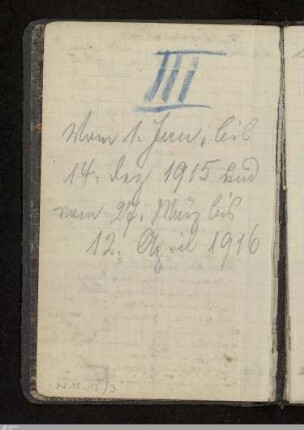 III
Vom 1. Jan. bis
14. Dez 1915 und
vom 27. März bis
12. April 1916
N 15.13/3